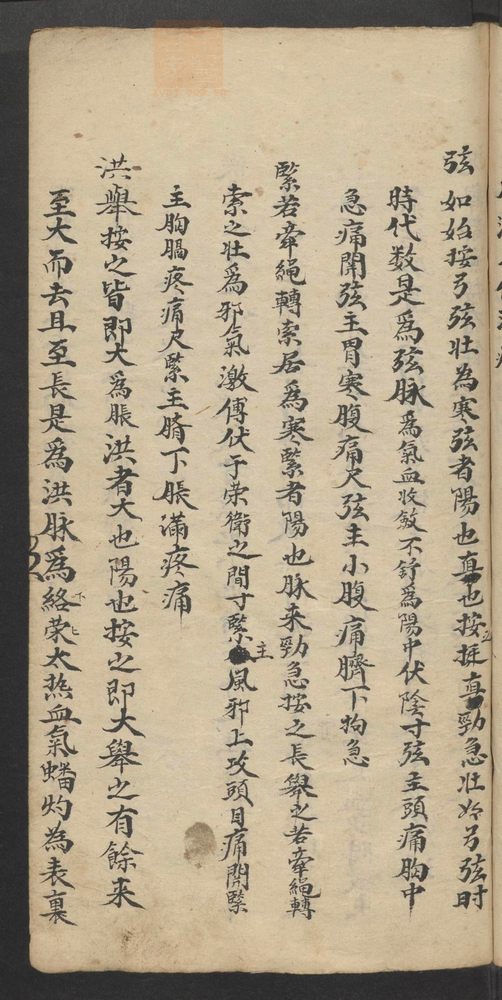 弦 如始按弓弦壮為寒弦者陽也真也按推真勁急壮如弓弦时
時代数是爲弦脉爲氣血收斂不舒爲陽中伏陰寸弦主頭痛胸中
急痛関弦主胃寒腹痛尺弦主小腹痛臍下拘急
緊若牵繩轉索居爲寒緊者陽也脉来勁急按之長舉之若牵繩轉
索之壮爲邪氣激傅伏于荣衛之間寸緊主風邪上攻頭目痛関緊
主胸膈疼痛尺緊主臍下脹滿疼痛
洪舉按之皆即大爲脹洪者大也陽也按之即大舉之有餘来
至大而去且至長是爲洪脉爲絡荣大热血氣蟠灼為表裏